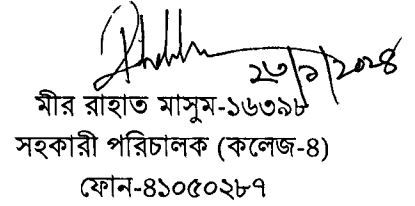 ২৩/১/২০২৪
মীর রাহাত মাসুম-১৬৩৯৮
সহকারী পরিচালক (কলেজ-৪)
ফোন-৪১০৫০২৮৭